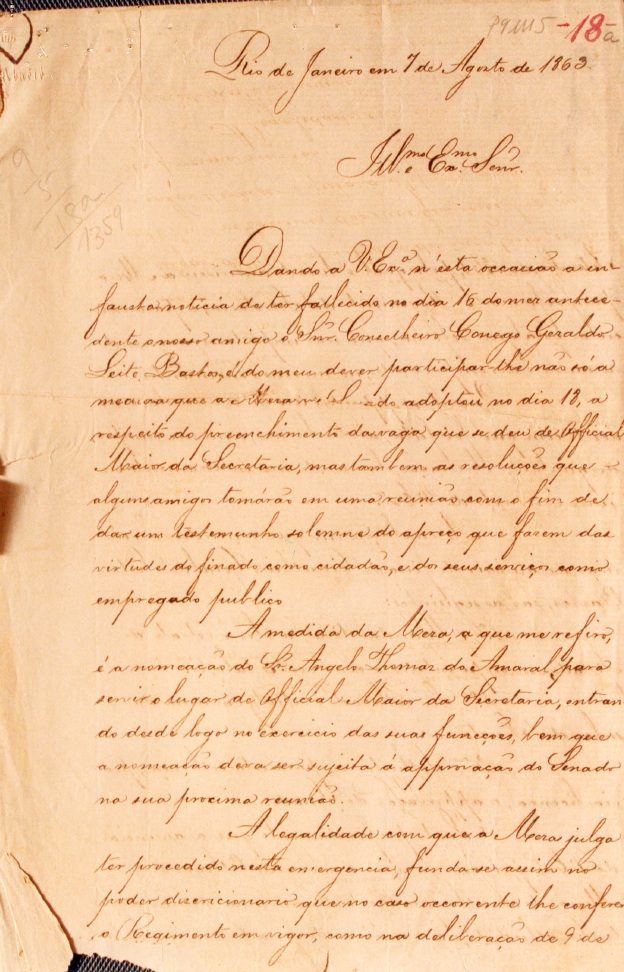 P9 1115 -18-a
Rio de Janeiro em 7 de Agosto de 1863
Ill.mo e Ex.mo Senr.
9
5
18a
1359
Dando a V. Ex.a n'ésta occasião a in-
fausta noticia de ter fallecido no dia 16 do mez antece-
dente o nosso amigo o Snr. Conselheiro Conego Geraldo
Leite Bastos, é do meu dever participar-lhe não só a
medida que a Meza do Senado adoptou no dia 18, a
respeito do preenchimento da vaga que se deu de Official
Maior da Secretaria, mas tambem as resoluções que
alguns amigos tomárão em uma reunião com o fim de
dar um testemunho solemne do apreço que fazem das
virtudes do finado como cidadão, e dos seus serviços como
empregado publico
A medida da Meza, a que me refiro,
é a nomeação do Sr. Angelo Thomaz do Amaral, para
servir o lugar de Official Maior da Secretaria, entran
do desde logo no exercicio das suas funcções, bem que
a nomeação deva ser sujeita á approvação do Senado
na sua proxima reunião.
A legalidade com que a Meza julga
ter procedido nesta emergencia, funda-se assim no
poder discricionario que no caso occorrente lhe confere
o Regimento em vigor, como na deliberação de 9 de